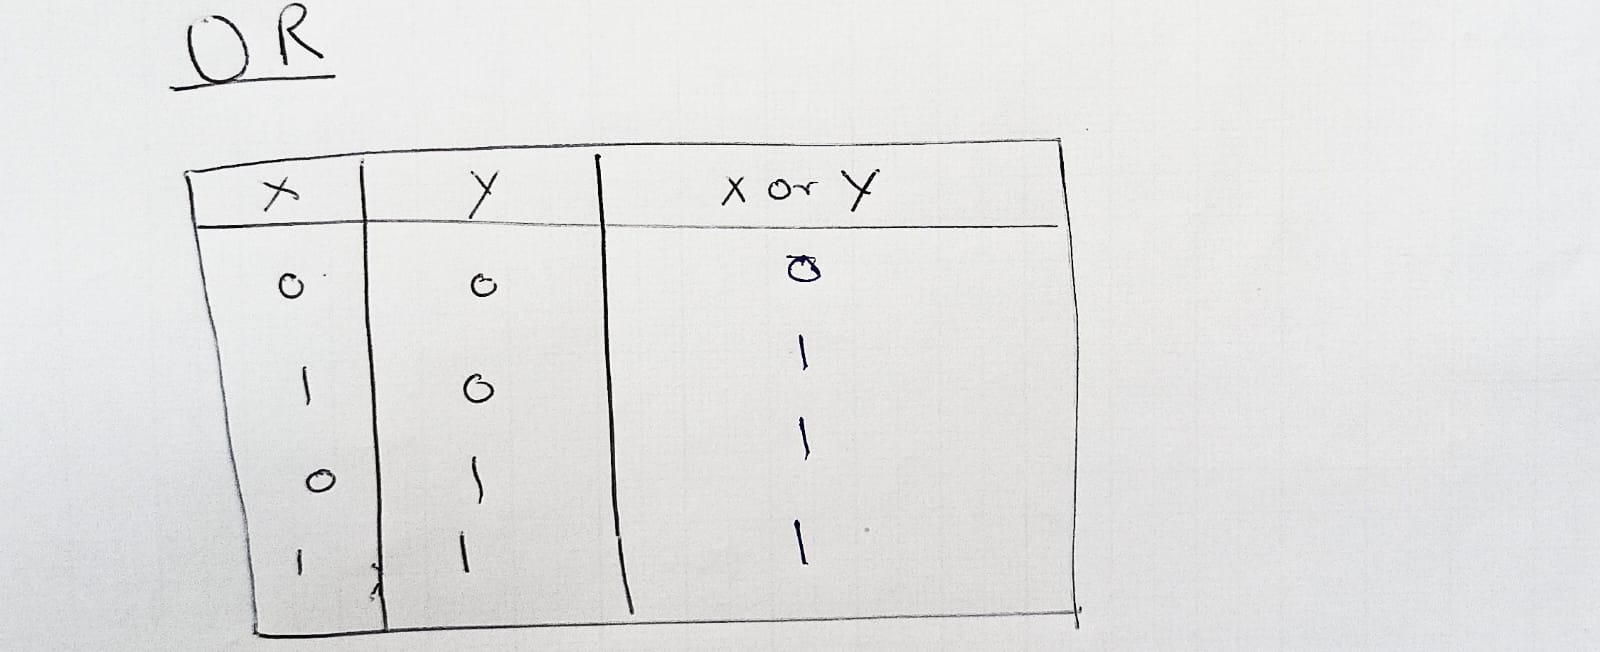 OR
X Y X or Y
0 0 0
1 0 1
0 1 1
1 1 1